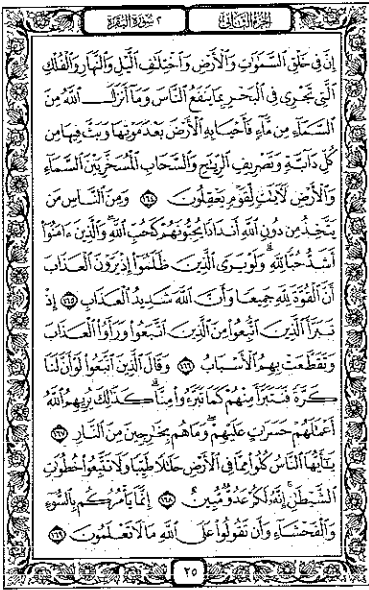 الجزء الثاني
٢ سورة البقرة
إِنَّ فِي خَلْقِ السَّمَٰوَٰتِ وَالْأَرْضِ وَاخْتِلَٰفِ الَّيْلِ وَالنَّهَارِ وَالْفُلْكِ
الَّتِي تَجْرِي فِي الْبَحْرِ بِمَا يَنفَعُ النَّاسَ وَمَا أَنزَلَ اللَّهُ مِنَ
السَّمَاءِ مِن مَّاءٍ فَأَحْيَا بِهِ الْأَرْضَ بَعْدَ مَوْتِهَا وَبَثَّ فِيهَا مِن
كُلِّ دَابَّةٍ وَتَصْرِيفِ الرِّيَٰحِ وَالسَّحَابِ الْمُسَخَّرِ بَيْنَ السَّمَاءِ
وَالْأَرْضِ لَءَايَٰتٍ لِّقَوْمٍ يَعْقِلُونَ ١٦٤ وَمِنَ النَّاسِ مَن
يَتَّخِذُ مِن دُونِ اللَّهِ أَندَادًا يُحِبُّونَهُمْ كَحُبِّ اللَّهِ وَالَّذِينَ ءَامَنُوا
أَشَدُّ حُبًّا لِّلَّهِ وَلَوْ يَرَى الَّذِينَ ظَلَمُوا إِذْ يَرَوْنَ الْعَذَابَ
أَنَّ الْقُوَّةَ لِلَّهِ جَمِيعًا وَأَنَّ اللَّهَ شَدِيدُ الْعَذَابِ ١٦٥ إِذْ
تَبَرَّأَ الَّذِينَ اتُّبِعُوا مِنَ الَّذِينَ اتَّبَعُوا وَرَأَوُا الْعَذَابَ
وَتَقَطَّعَتْ بِهِمُ الْأَسْبَابُ ١٦٦ وَقَالَ الَّذِينَ اتَّبَعُوا لَوْ أَنَّ لَنَا
كَرَّةً فَنَتَبَرَّأَ مِنْهُمْ كَمَا تَبَرَّءُوا مِنَّا كَذَٰلِكَ يُرِيهِمُ اللَّهُ
أَعْمَٰلَهُمْ حَسَرَٰتٍ عَلَيْهِمْ وَمَا هُم بِخَٰرِجِينَ مِنَ النَّارِ ١٦٧
يَٰأَيُّهَا النَّاسُ كُلُوا مِمَّا فِي الْأَرْضِ حَلَٰلًا طَيِّبًا وَلَا تَتَّبِعُوا خُطُوَٰتِ
الشَّيْطَٰنِ إِنَّهُ لَكُمْ عَدُوٌّ مُّبِينٌ ١٦٨ إِنَّمَا يَأْمُرُكُم بِالسُّوءِ
وَالْفَحْشَاءِ وَأَن تَقُولُوا عَلَى اللَّهِ مَا لَا تَعْلَمُونَ ١٦٩
٢٥